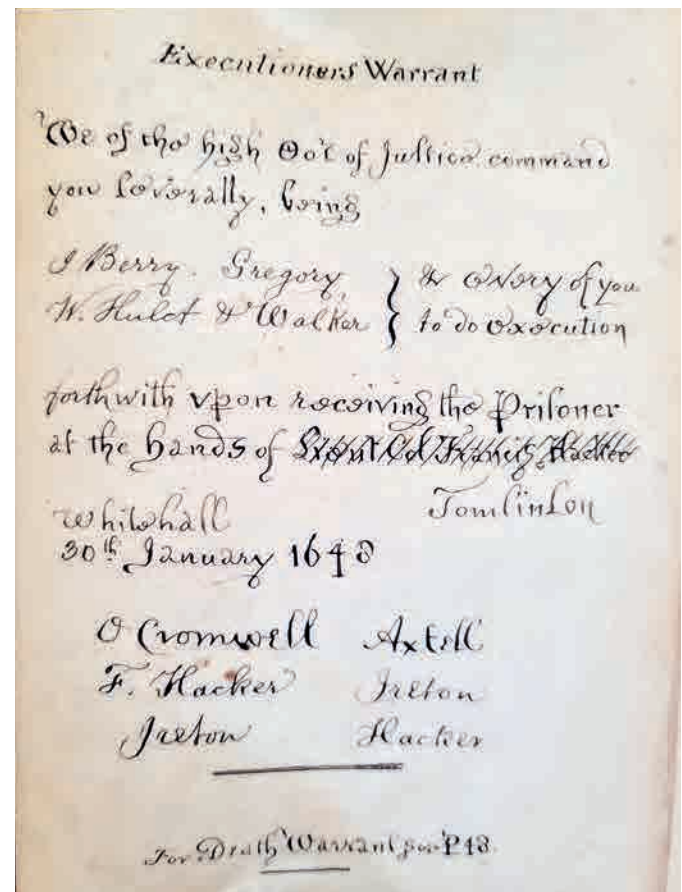 Executioners Warrant
We of the high Co't of Justice command
you severally, being
J Berry. Gregory,
W. Hulet & Walker
& every of you
to do execution
forthwith upon receiving the Prisoner
at the hands of
Tomlinson
Whitehall
30th January 1648
O Cromwell Axtell
F. Hacker Ireton
Ireton Hacker
For Death Warrant see P48